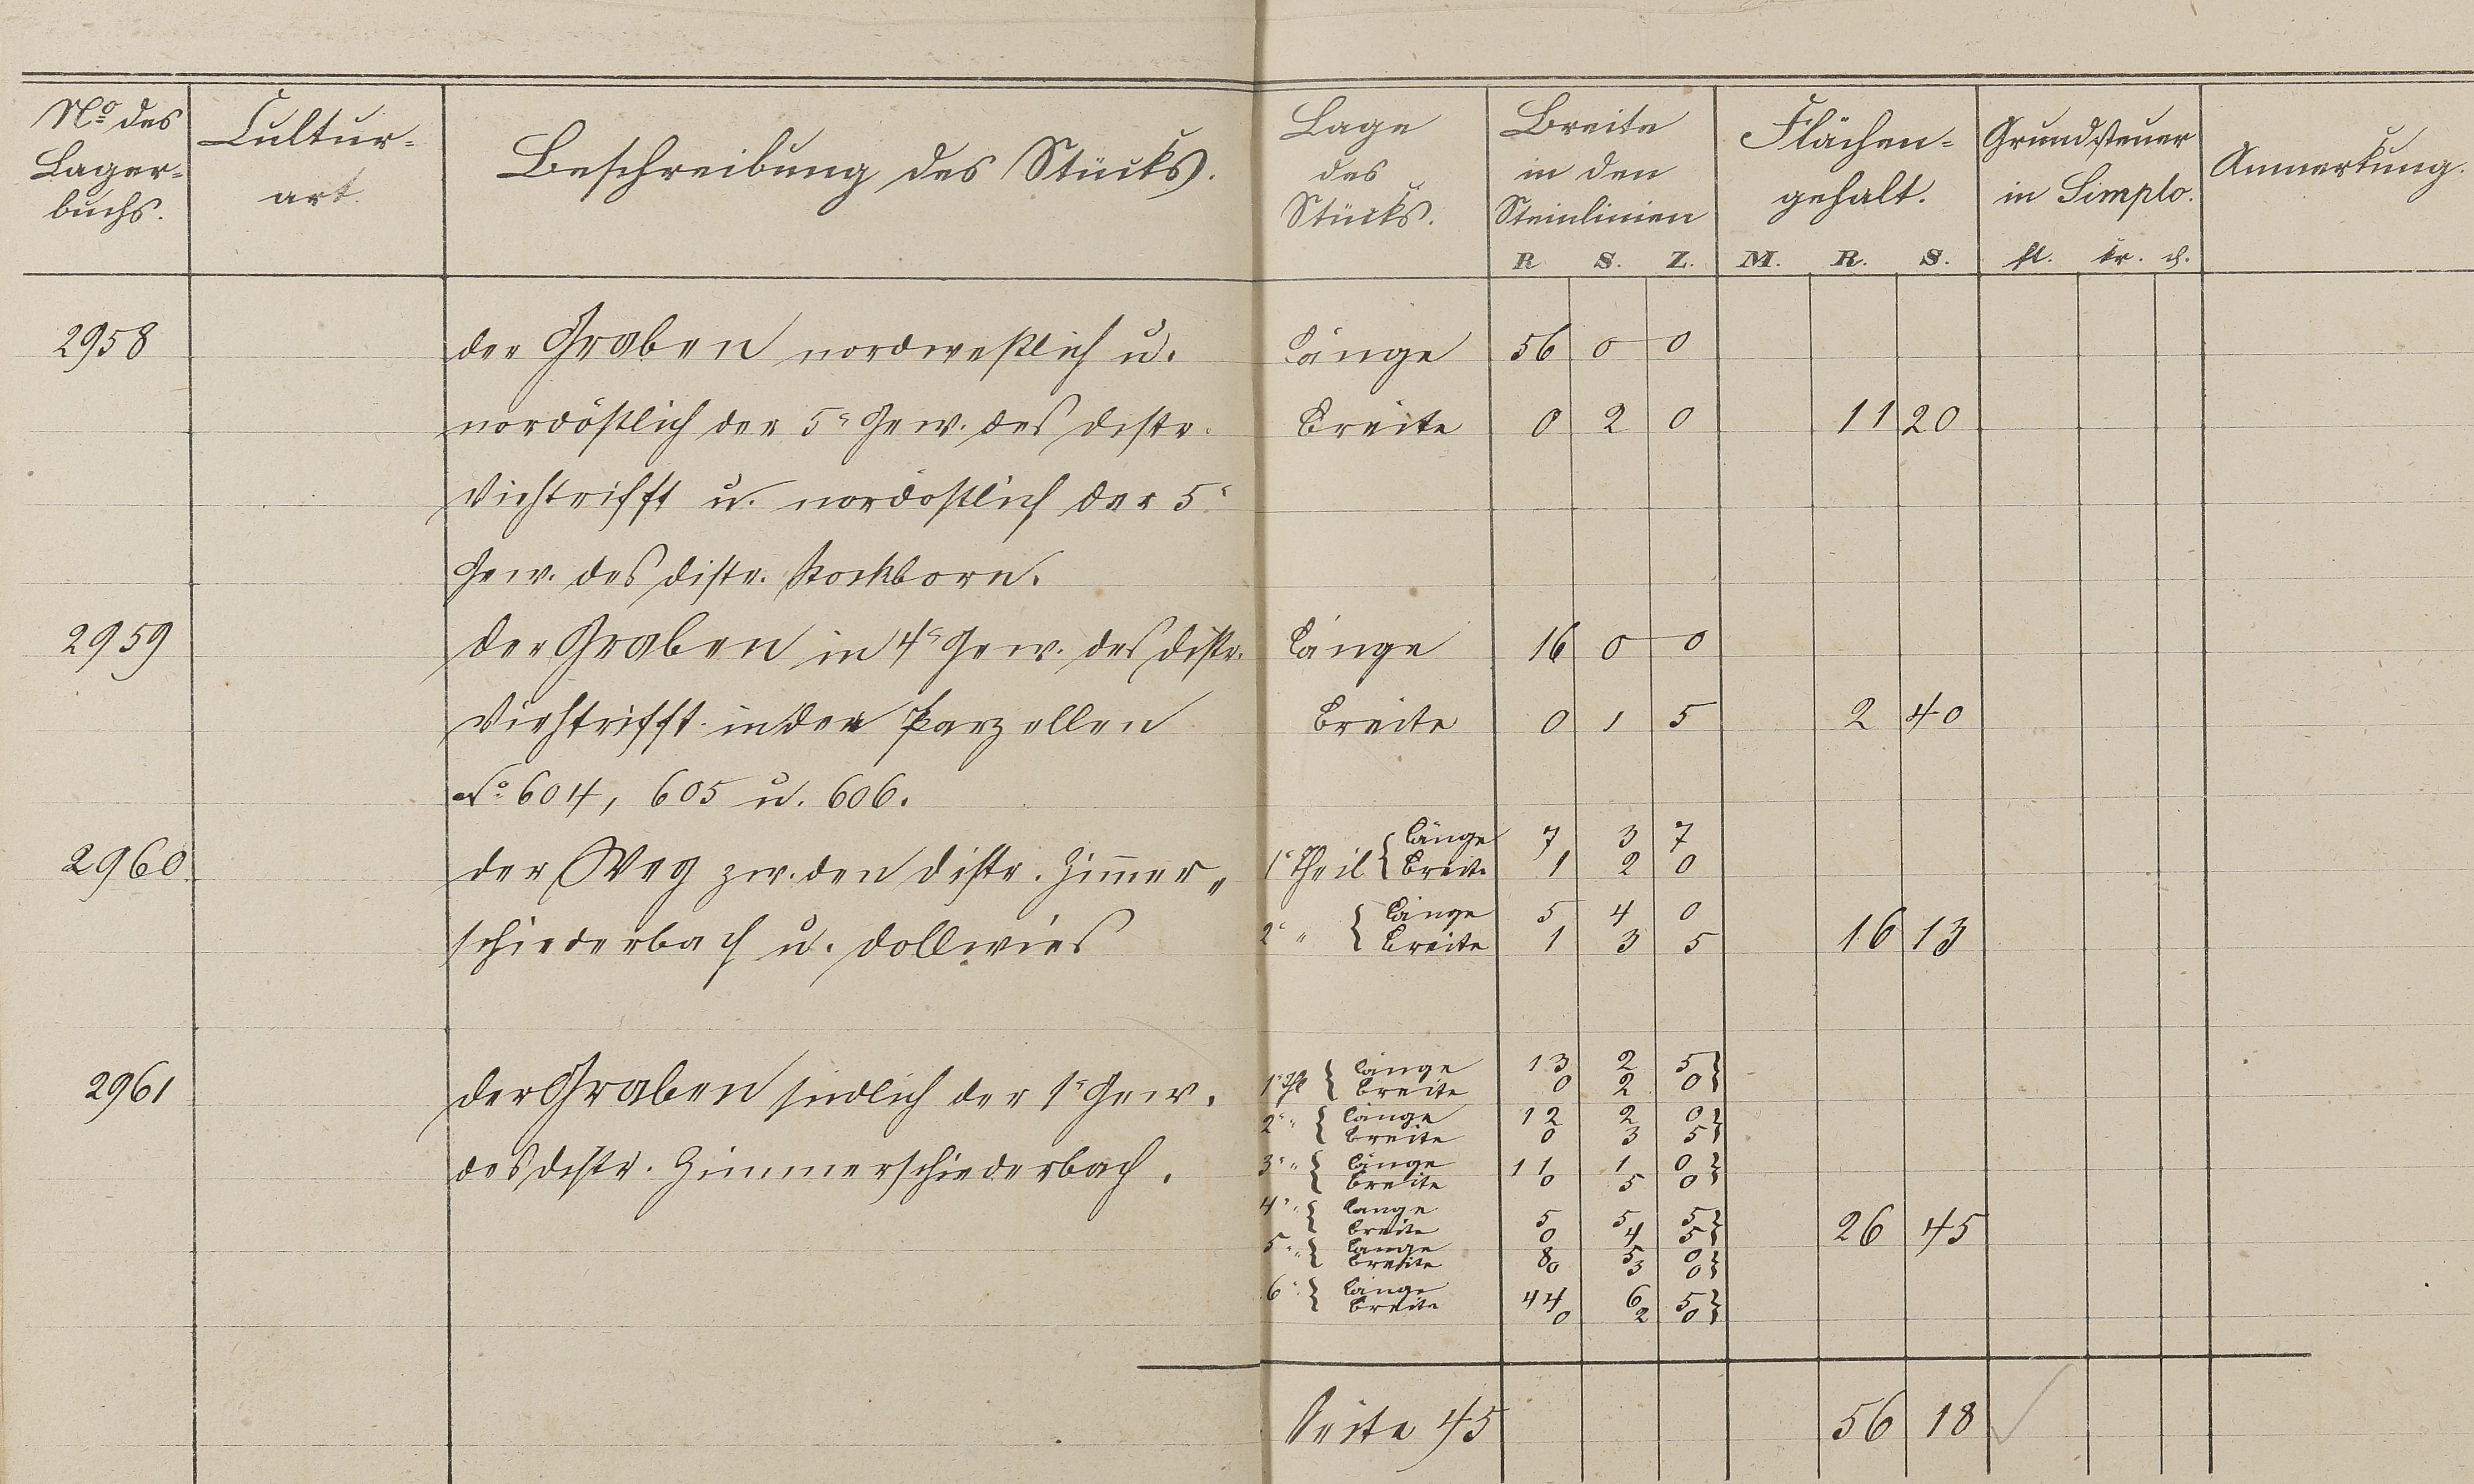 No des Lagerbuchs.
Culturart.
Beschreibung des Stücks.
Lage des Stücks.
Breite in den Steinlinien
R S. Z.
Flächengehalt.
M. R. S.
Grundsteuer in Simplo.
fl. kr. d.
Anmerkung.
2958 der Graben nordwestlich u. Länge 56 0 0
nordöstlich der 5r Gew. des Distr. Breite 0 2 0 11 20
Viehtrifft u. nordostlich der 5r
Gew. des Distr. Kockborn.
2959 der Graben in 4r Gew. des Distr. Länge 16 0 0
Viehtrifft in den Parzellen Breite 0 1 5 2 40
No 604, 605 u. 606.
2960 der Weg zw. den Distr. Zim̄er„ 1r Theil Länge 7 3 7
Breite 1 2 0
schiederbach u. Dollwies 2r " Länge 5 4 0
Breite 1 3 5 16 13
2961 der Graben südlich der 1r Gew. 1r Thl Länge 13 2 5
Breite 0 2 0
2r " Länge 12 2 0
Breite 0 3 5
des Distr. Zimmerschiederbach. 3r " Länge 11 1 0
Breite 0 5 0
4r " Länge 5 5 5
Breite 0 4 5 26 45
5r " Länge 8 5 0
Breite 0 3 0
6r " Länge 44 6 5
Breite 0 2 0
Seite 45 56 18